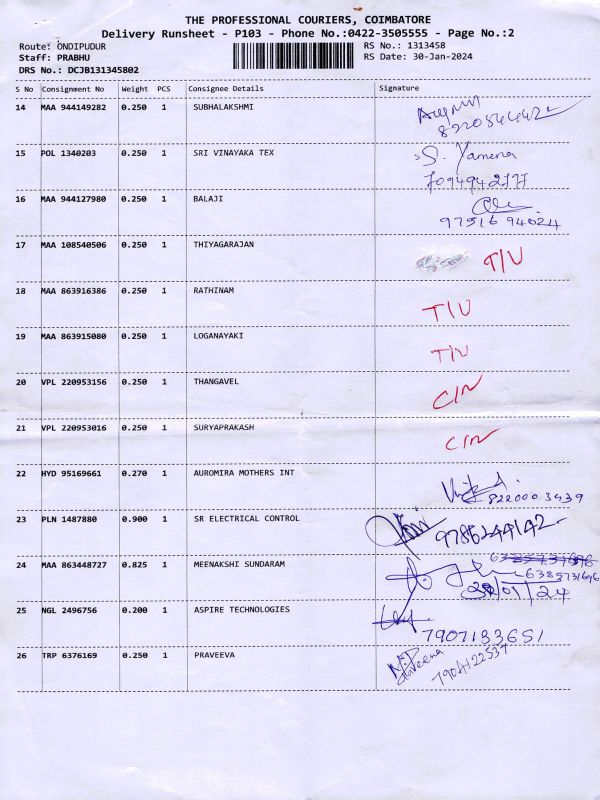 THE PROFESSIONAL COURIERS, COIMBATORE
Delivery Runsheet - P103 - Phone No.:0422-3505555 - Page No.:2
Route: ONDIPUDUR RS No.: 1313458
Staff: PRABHU RS Date: 30-Jan-2024
DRS No.: DCJB131345802
S No Consignment No Weight PCS Consignee Details Signature
14 MAA 944149282 0.250 1 SUBHALAKSHMI
15 POL 1340203 0.250 1 SRI VINAYAKA TEX S. Yamena
7094942777
16 MAA 944127980 0.250 1 BALAJI
97516 94024
17 MAA 108540506 0.250 1 THIYAGARAJAN T/U
18 MAA 863916386 0.250 1 RATHINAM T/U
19 MAA 863915080 0.250 1 LOGANAYAKI T/U
20 VPL 220953156 0.250 1 THANGAVEL C/N
21 VPL 220953016 0.250 1 SURYAPRAKASH C/N
22 HYD 95169661 0.270 1 AUROMIRA MOTHERS INT
822000 3439
23 PLN 1487880 0.900 1 SR ELECTRICAL CONTROL 9786244142
24 MAA 863448727 0.825 1 MEENAKSHI SUNDARAM
6385731696
/01/24
25 NGL 2496756 0.200 1 ASPIRE TECHNOLOGIES
7907183651
26 TRP 6376169 0.250 1 PRAVEEVA Praveena
7904122537